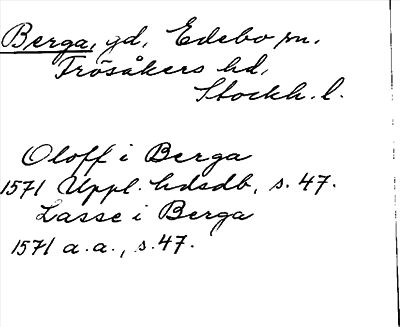 Berga, gd, Edebo sn.
Frösåkers hd,
Stockh. l.
Oloff i Berga
1571 Uppl. hdsdb, s. 47.
Lasse i Berga
1571 a. a., s. 47.